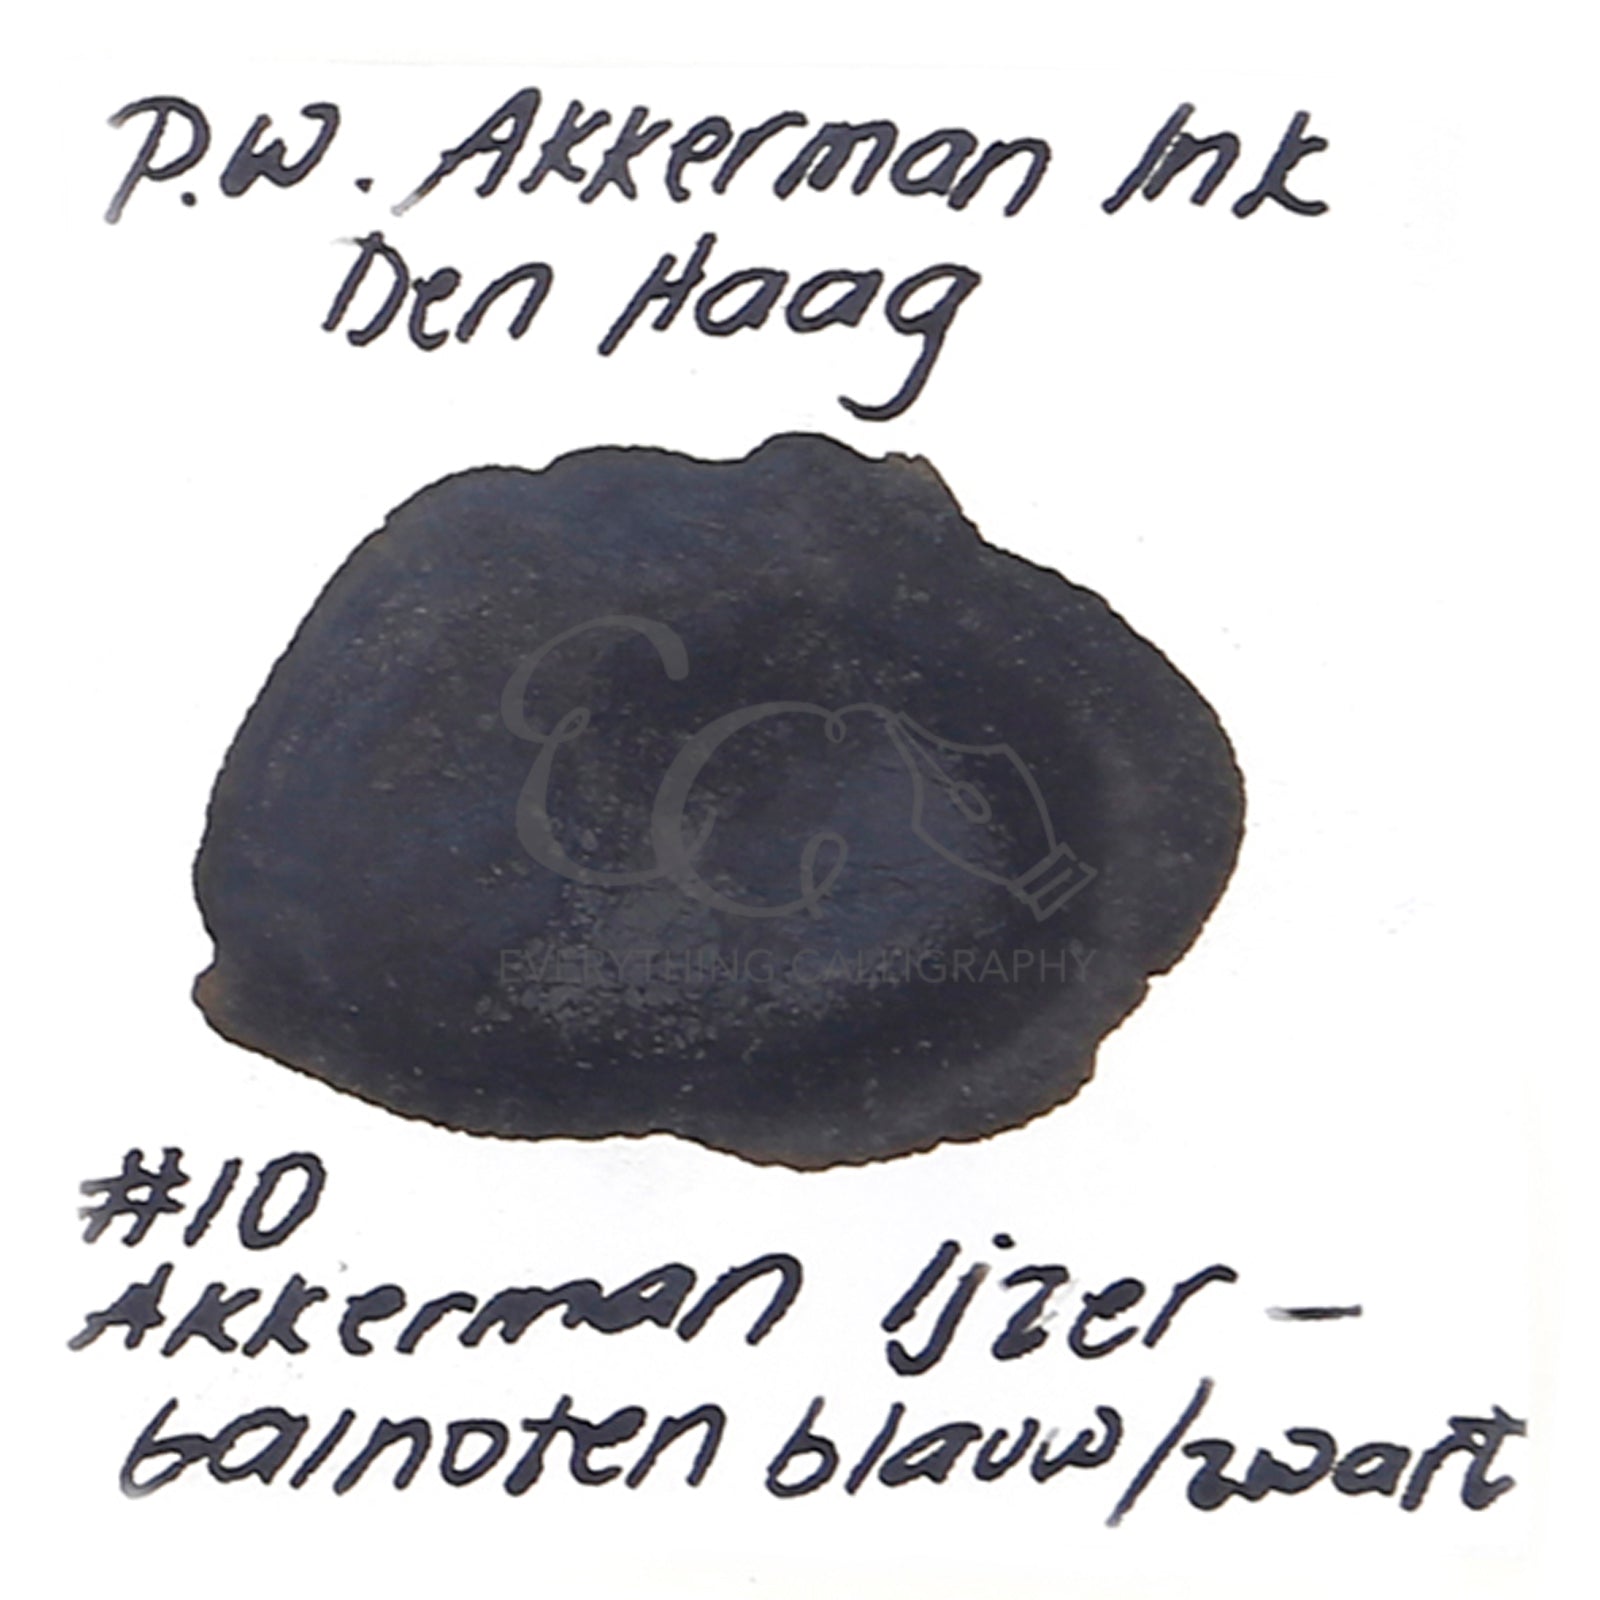 P.W. Akkerman Ink
Den Haag
EC
EVERYTHING CALLIGRAPHY
#10
Akkerman Ijzer -
Galnoten blauw/zwart